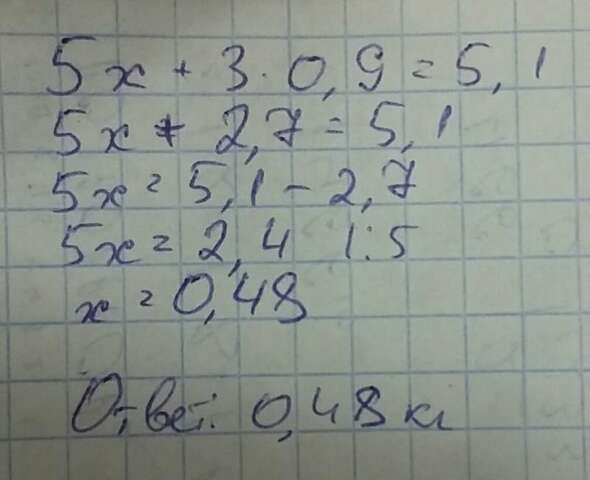 5x + 3 · 0,9 = 5,1
5x + 2,7 = 5,1
5x = 5,1 - 2,7
5x = 2,4 | : 5
x = 0,48
Ответ: 0,48 кг